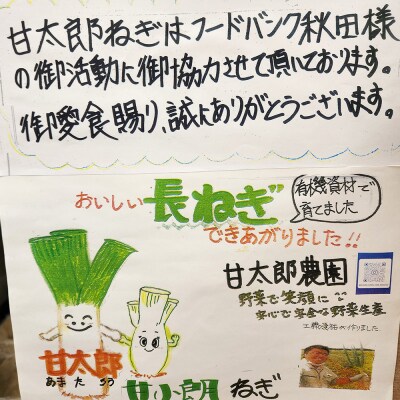 甘太郎ねぎはフードバンク秋田様
の御活動に御協力させて頂いております。
御愛食賜り、誠にありがとうございます。
おいしい長ねぎ
できあがりました!!
有機資材で
育てました
甘太郎農園
野菜で笑顔に
安心で安全な野菜生産
甘太郎
あまたろう
ねぎ